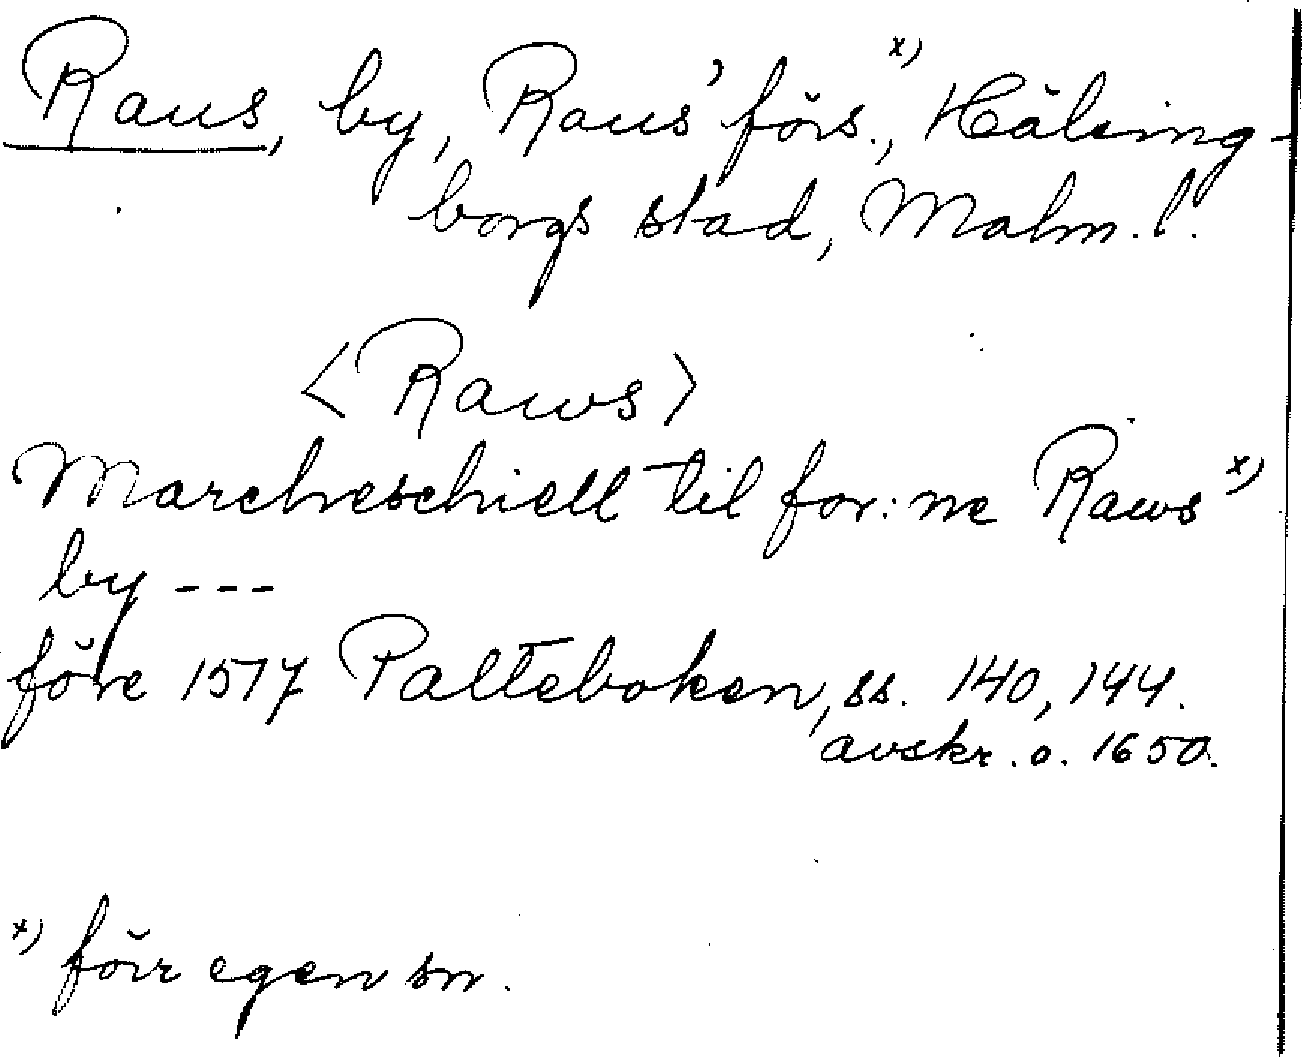 Raus, by, Raus' förs.,ˣ⁾ Hälsing-
borgs stad, Malm. l.
<Raws>
Marcheschiell til for:ne Rawsˣ⁾
by ---
före 1517 Palteboken, ss. 140, 144.
avskr. o. 1650.
ˣ⁾ förr egen sn.